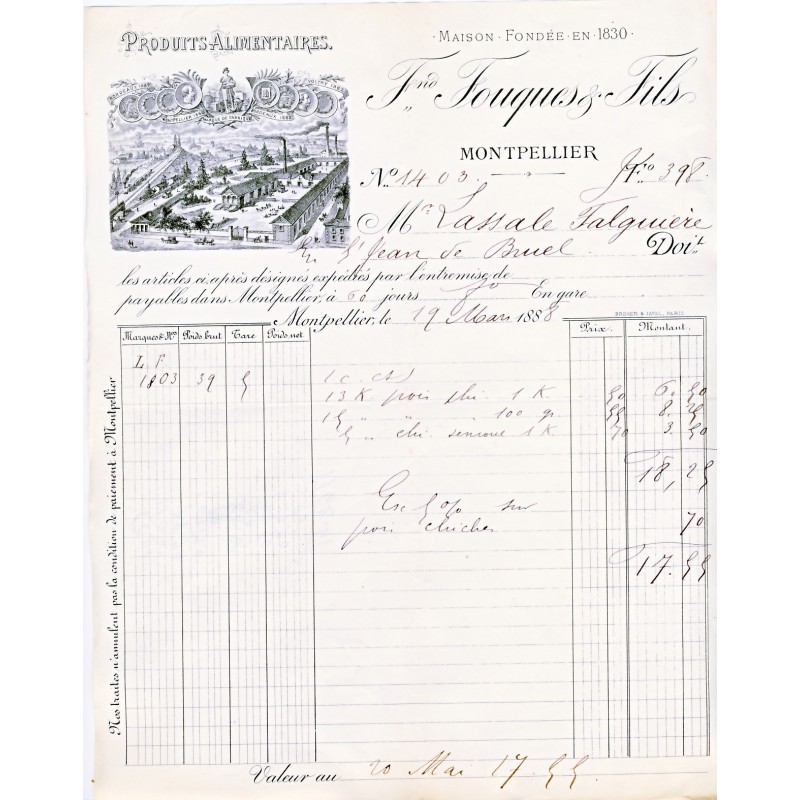 PRODUITS-ALIMENTAIRES.
MAISON · FONDÉE · EN · 1830
Fnd Fouques & Fils
MONTPELLIER
No 1403. Fio 398.
Mr Lassale Falguière
En St Jean de Bruel Doit
les articles ci après désignés expédiés par l'entremise de
payables dans Montpellier, à 60 jours En gare
Montpellier, le 19 Mars 1888
Marques & Nos Poids brut Tare Poids net Prix Montant
L F
1803 39 5 1 c.
13 K pois chi. 1 K 50 6.50
15 " " 100 gr. 55 8.25
5 " chi. semoule 1 K 70 3.50
18,25
Esc 5 % sur
pois chiches 70
17.55
Valeur au 20 Mai 17.55
Nos traites n'annulent pas la condition de paiement à Montpellier